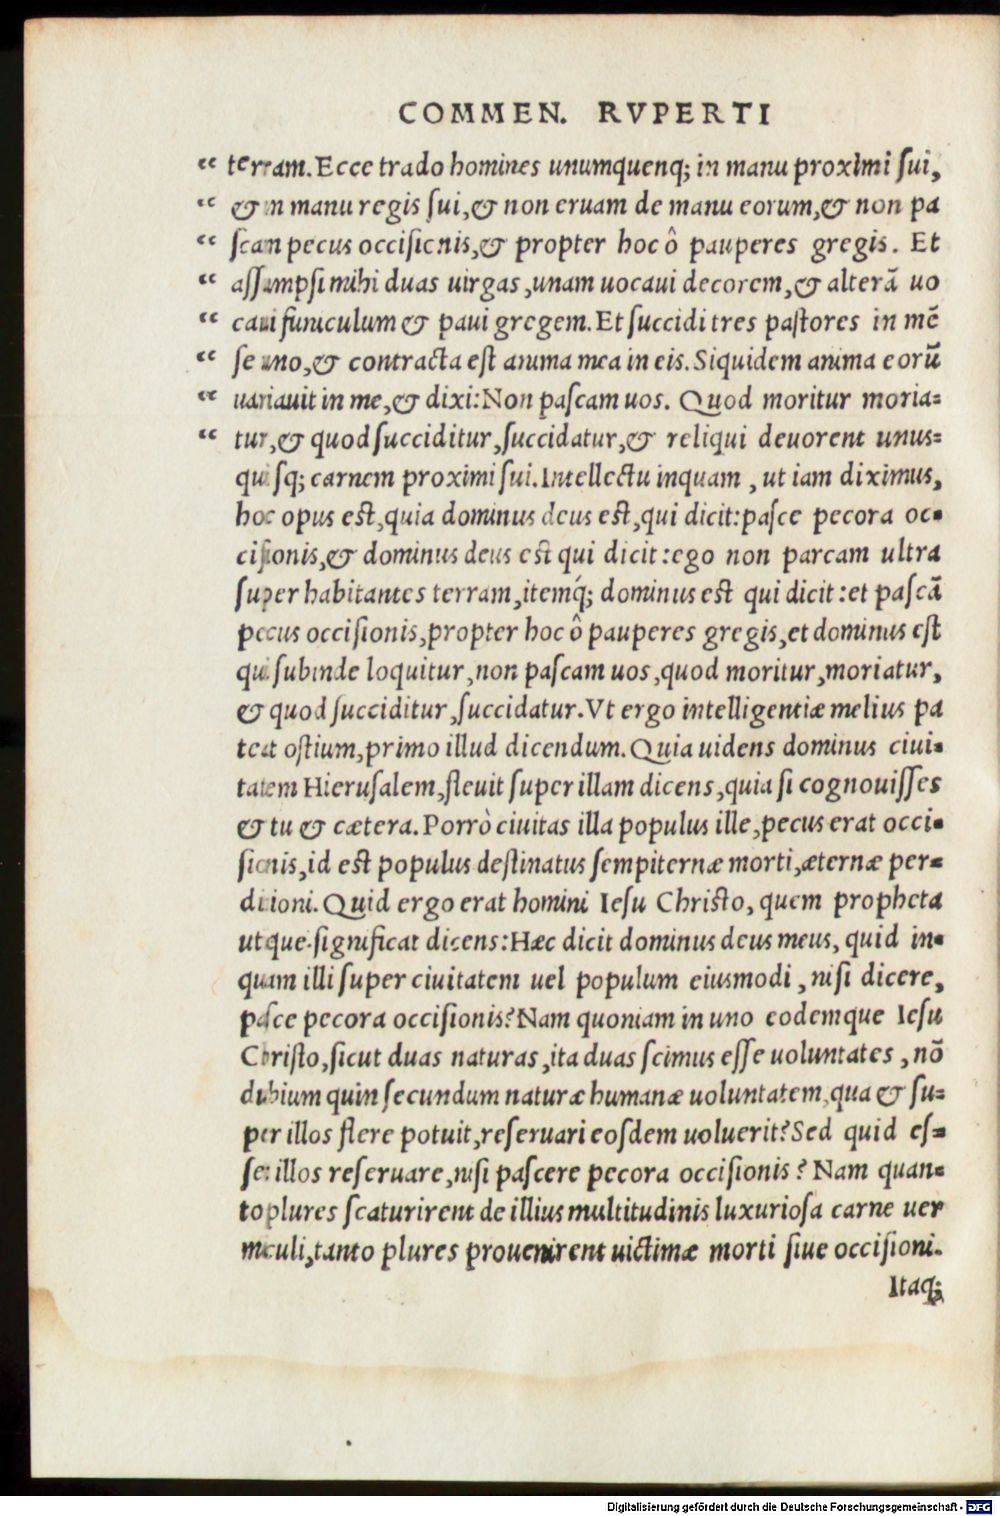 COMMEN. RVPERTI
“ terram. Ecce trado homines unumquenq; in manu proximi sui,
“ & in manu regis sui, & non eruam de manu eorum, & non pa
“ scam pecus occisionis, & propter hoc ô pauperes gregis. Et
“ assumpsi mihi duas uirgas, unam uocaui decorem, & alterā uo
“ caui funiculum & paui gregem. Et succidi tres pastores in mē
“ se uno, & contracta est anima mea in eis. Siquidem anima eorū
“ uariauit in me, & dixi: Non pascam uos. Quod moritur moria-
“ tur, & quod succiditur, succidatur, & reliqui deuorent unus-
quisq; carnem proximi sui. Intellectu inquam, ut iam diximus,
hoc opus est, quia dominus deus est, qui dicit: pasce pecora oc-
cisionis, & dominus deus est qui dicit: ego non parcam ultra
super habitantes terram, itemq́; dominus est qui dicit: et pascā
pecus occisionis, propter hoc ô pauperes gregis, et dominus est
qui subinde loquitur, non pascam uos, quod moritur, moriatur,
& quod succiditur, succidatur. Vt ergo intelligentiæ melius pa
teat ostium, primo illud dicendum. Quia uidens dominus ciui-
tatem Hierusalem, fleuit super illam dicens, quia si cognouisses
& tu & cætera. Porrò ciuitas illa populus ille, pecus erat occi-
sionis, id est populus destinatus sempiternæ morti, æternæ per-
ditioni. Quid ergo erat homini Iesu Christo, quem propheta
utique significat dicens: Hæc dicit dominus deus meus, quid in-
quam illi super ciuitatem uel populum eiusmodi, nisi dicere,
pasce pecora occisionis? Nam quoniam in uno eodemque Iesu
Christo, sicut duas naturas, ita duas scimus esse uoluntates, nō
dubium quin secundum naturæ humanæ uoluntatem, qua & su-
per illos flere potuit, reseruari eosdem uoluerit? Sed quid es-
set illos reseruare, nisi pascere pecora occisionis? Nam quan-
to plures scaturirent de illius multitudinis luxuriosa carne uer
miculi, tanto plures prouenirent uictimæ morti siue occisioni.
Itaq;
Digitalisierung gefördert durch die Deutsche Forschungsgemeinschaft - DFG